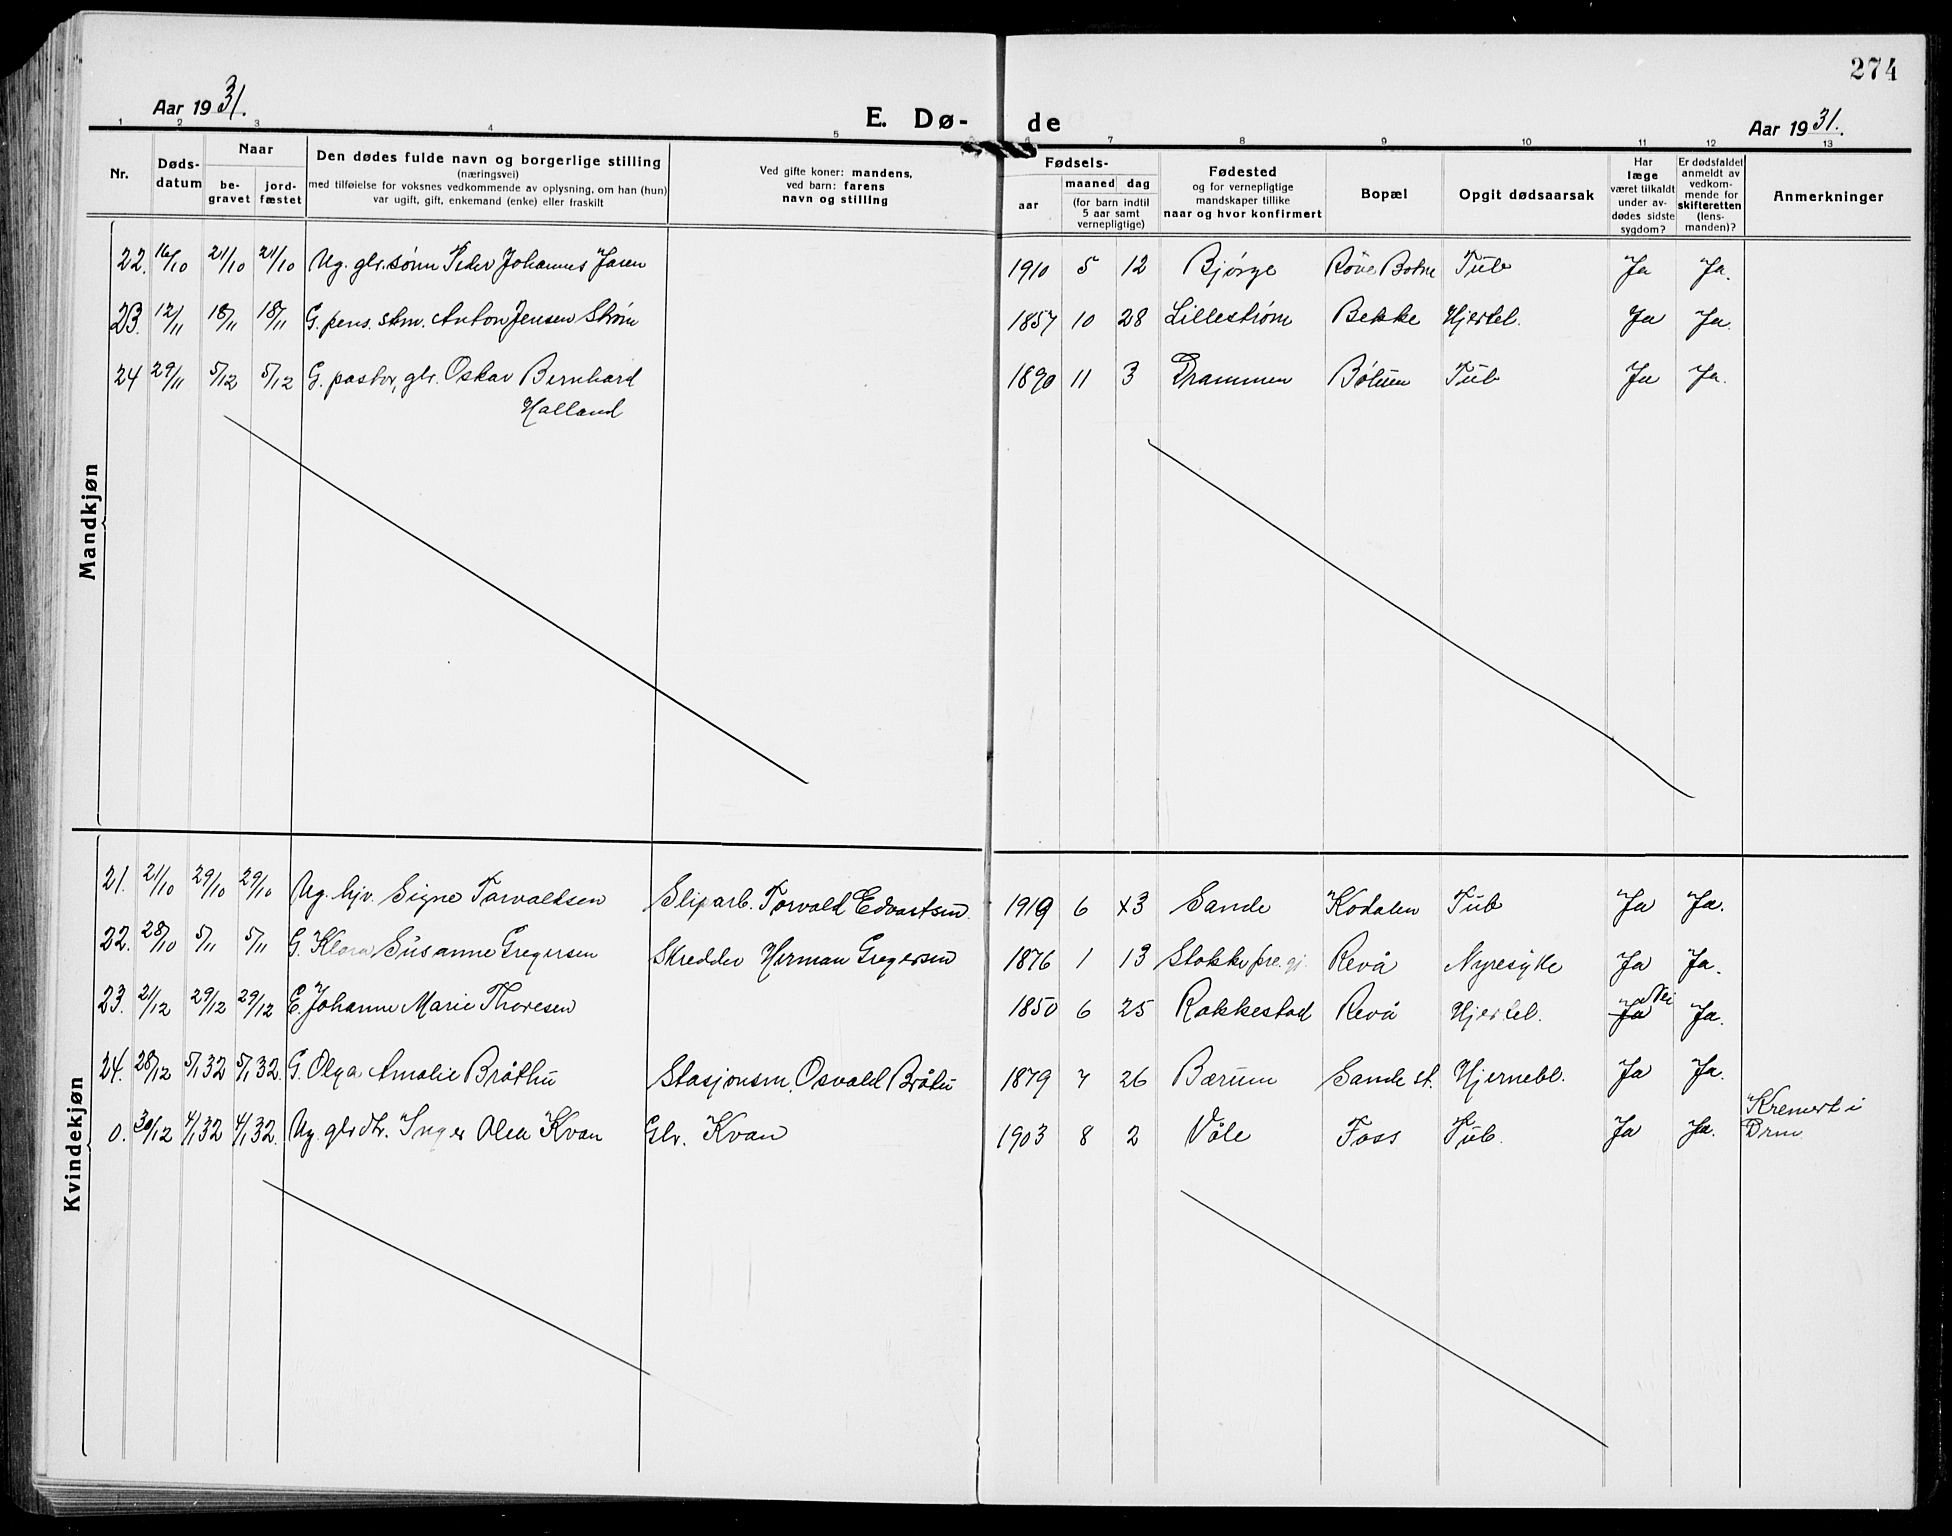 274
Aar 1931.
E. Dø-
de
Aar 1931.
1 2 3 4 5 6 7 8 9 10 11 12 13
Nr.
Døds-
datum
Naar
be-
gravet
jord-
fæstet
Den dødes fulde navn og borgerlige stilling
(næringsvei)
med tilføielse for voksnes vedkommende av oplysning, om han (hun)
var ugift, gift, enkemand (enke) eller fraskilt
Ved gifte koner: mandens,
ved barn: farens
navn og stilling
Fødsels-
aar
maaned dag
(for barn indtil
5 aar samt
vernepligtige)
Fødested
og for vernepligtige
mandskaper tillike
naar og hvor konfirmert
Bopæl
Opgit dødsaarsak
Har
læge
været tilkaldt
under av-
dødes sidste
sygdom?
Er dødsfaldet
anmeldt av
vedkom-
mende for
skifteretten
(lens-
manden)?
Anmerkninger
Mandkjøn
22. 16/10 21/10 21/10 Ug. gbr.sønn Peder Johannes Jaren 1910 5 12 Bjørge Botne Tub Ja Ja.
23. 12/11 18/11 18/11 G. pens. stm. Anton Jensen Strøm 1857 10 28 Lillestrøm Bekke Hjertel. Ja Ja.
24 29/11 5/12 5/12 G. pastor, gbr. Oskar Bernhard 1890 11 3 Drammen Tub Ja Ja.
Halland
Kvindekjøn
21. 21/10 29/10 29/10 Ug. hjv. Signe Torvaldsen Sliparb. Torvald Edvartsen 1919 6 Sande Kodalen Tub Ja Ja.
22. 28/10 5/11 5/11 G. Klara Susanne Gregersen Skredder Herman Gregersen 1876 1 13 Stokke pre.gj. Revå Nyresyke Ja Ja.
23. 21/12 29/12 29/12 E. Johanne Marie Thoresen 1850 6 25 Rakkestad Revå Hjertel. Ja Nei Ja.
24. 28/12 5/1 32 5/1 32. G. Olga Amalie Bråthu Stasjonsm. Osvald Bråtu 1879 7 26 Bærum Sande st. Hjernebl. Ja Ja.
0. 30/12 4/1 32 4/1 32. Ug. gbrdtr. Inger Olea Kvan Gbr. Kvan 1903 8 2 Våle Foss Tub. Ja Ja. Kremert i
Drm.